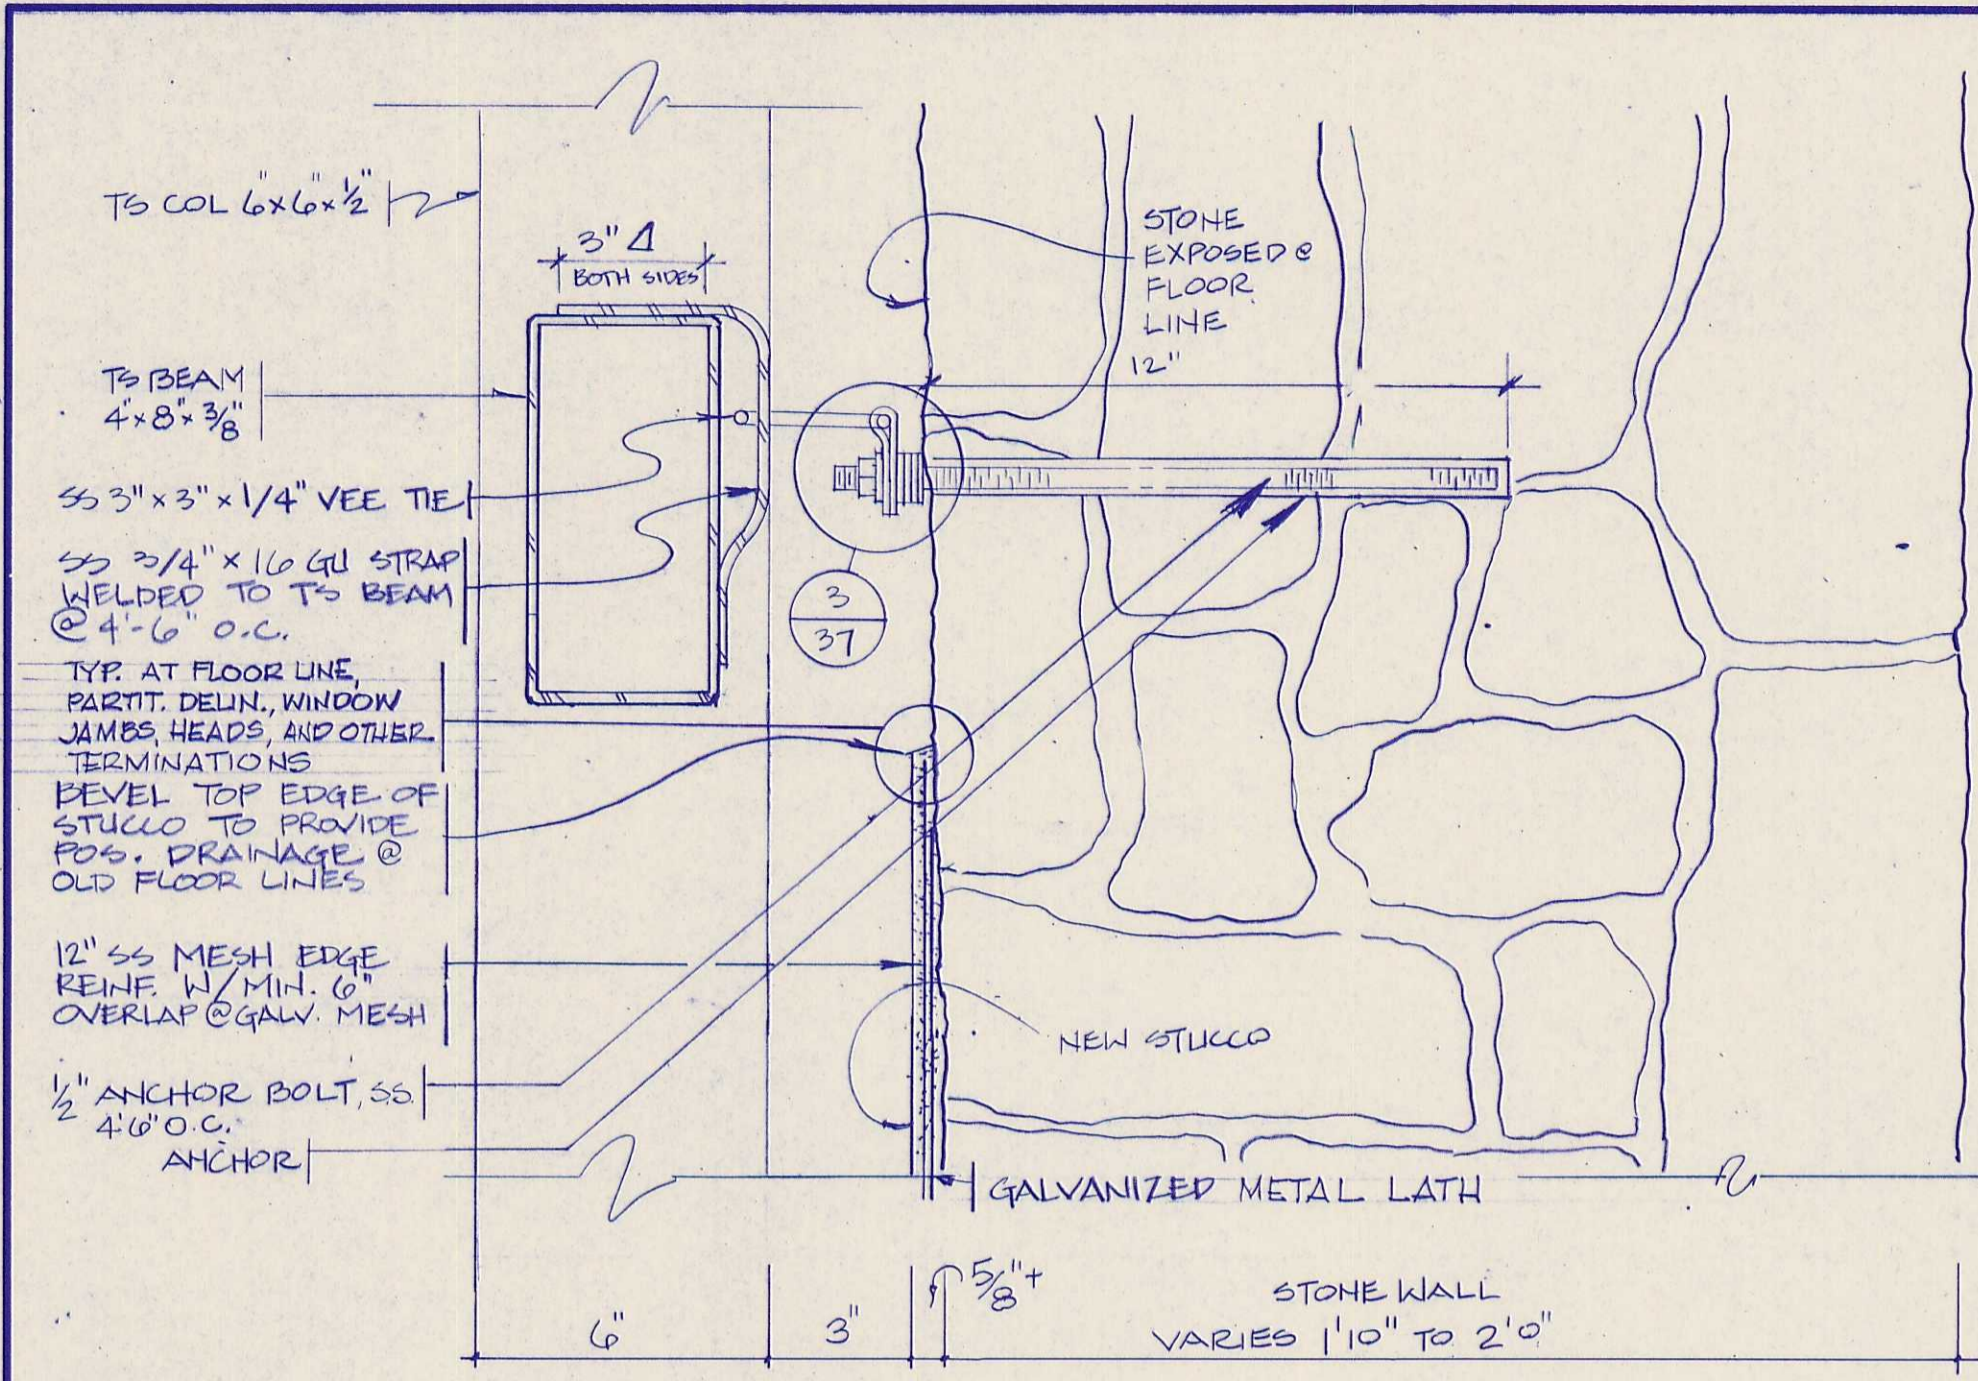 TS COL 6"x6"x½"
3" Δ
BOTH SIDES
STONE
EXPOSED @
FLOOR
LINE
12"
TS BEAM
4"x8"x3/8"
SS 3"x3"x1/4" VEE TIE
SS 3/4"x16 GU STRAP
WELDED TO TS BEAM
@ 4'-6" O.C.
3
37
TYP. AT FLOOR LINE,
PARTIT. DELIN., WINDOW
JAMBS, HEADS, AND OTHER
TERMINATIONS
BEVEL TOP EDGE OF
STUCCO TO PROVIDE
POS. DRAINAGE @
OLD FLOOR LINES
12" SS MESH EDGE
REINF. W/MIN. 6"
OVERLAP @ GALV. MESH
NEW STUCCO
½" ANCHOR BOLT, S.S.
4'6" O.C.
ANCHOR
GALVANIZED METAL LATH
6"
3"
5/8"+
STONE WALL
VARIES 1'10" TO 2'0"